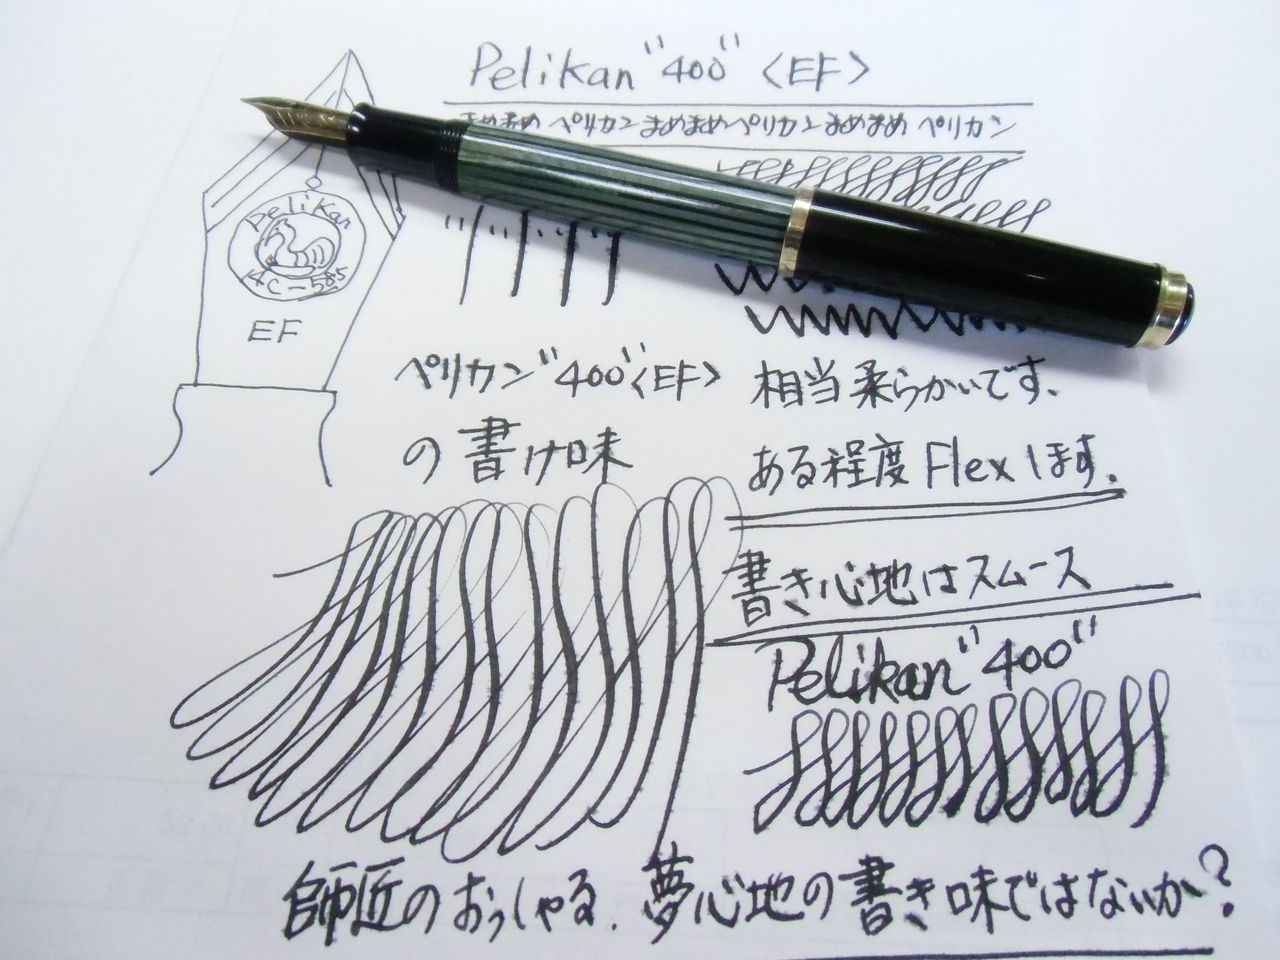 Pelikan "400" <EF>
まめ ペリカン まめまめペリカン まめまめ ペリカン
Pelikan
14C-585
EF
ペリカン"400"<EF>
の書け味
相当柔らかいです.
ある程度Flexします.
書き心地はスムース
Pelikan "400"
師匠のおっしゃる.夢心地の書き味ではないか?